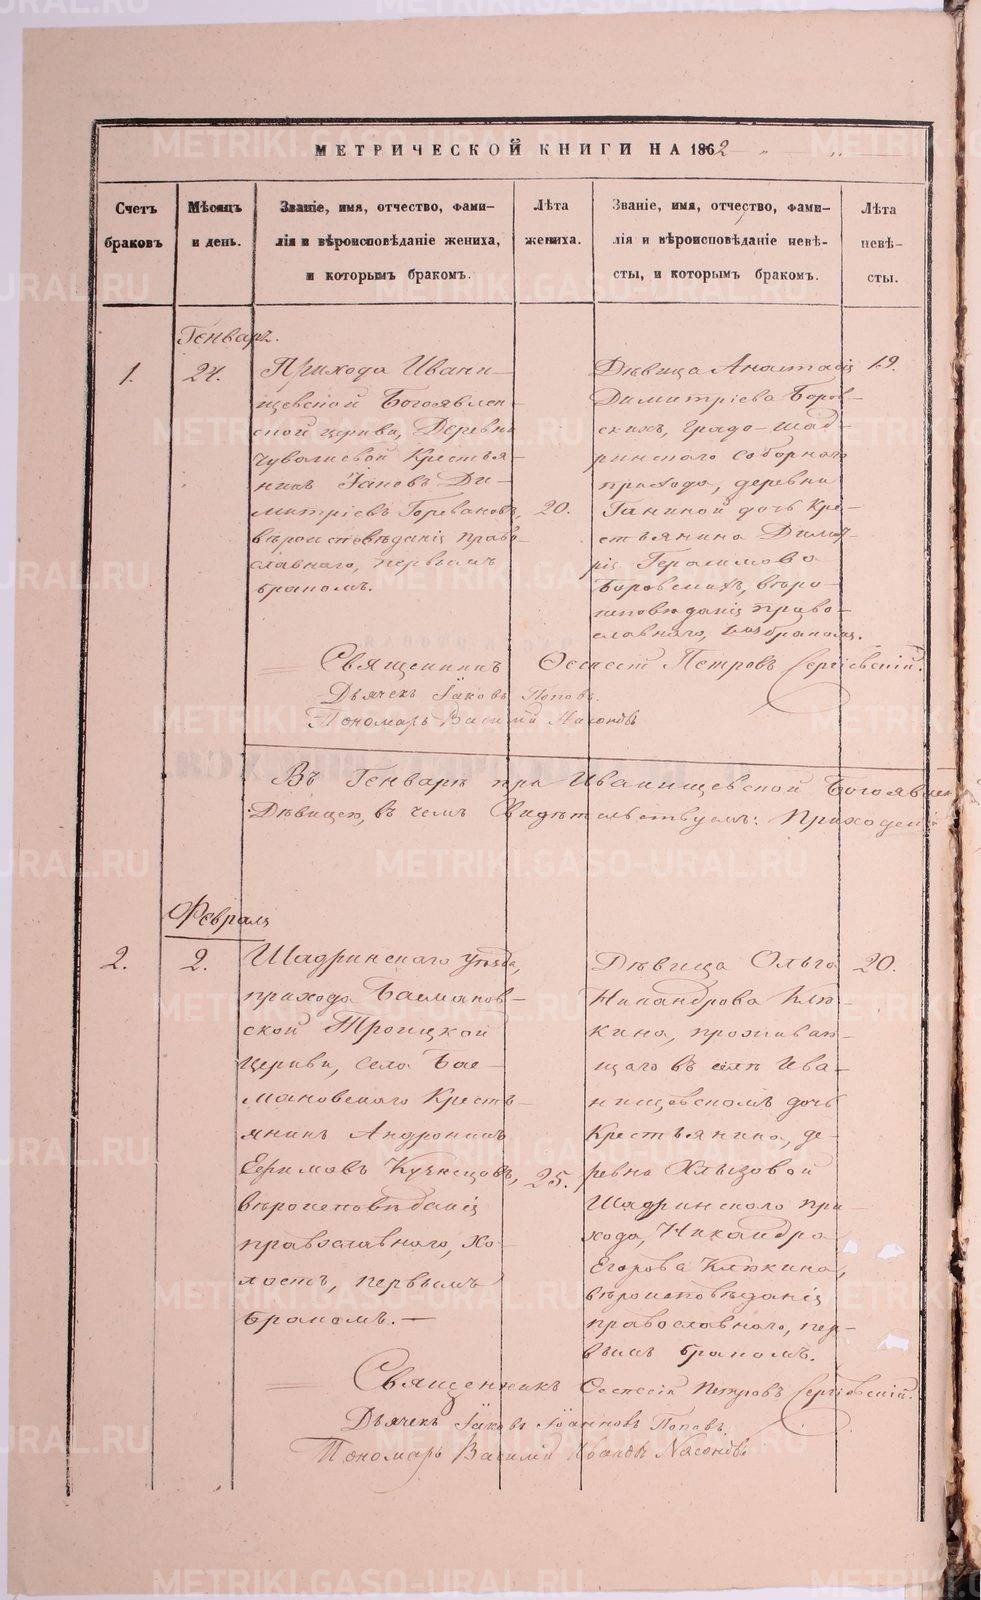 МЕТРИЧЕСКОЙ КНИГИ НА 1862
Счетъ браковъ
Мѣсяцъ и день.
Званіе, имя, отчество, фами-
лія и вѣроисповѣданіе жениха,
и которымъ бракомъ.
Лѣта жениха.
Званіе, имя, отчество, фами-
лія и вѣроисповѣданіе невѣ-
сты, и которымъ бракомъ.
Лѣта невѣ-
сты.
Генваръ.
1.
24.
Прихода Ивани-
щевской Богоявлен-
ской церкви, Деревни
Чувашевой Крестья-
нинъ Іаковъ Ди-
митріевъ Горевановъ,
вѣроисповѣданія право-
славнаго, первымъ
бракомъ.
20.
Дѣвица Анастасія
Димитріева Боров-
скихъ, градо-Шад-
ринскаго соборнаго
прихода, деревни
Ганиной дочь Кре-
стьянина Димит-
рія Герасимова
Боровскихъ, вѣро-
исповѣданія право-
славнаго, бракомъ.
19.
Священникъ Петровъ Сергіевскій.
Дьячекъ Іаковъ Поповъ.
Пономарь Василій Насоновъ
Въ Генварѣ при Иванищевской Богоявлен
Дѣвицею, въ чемъ Свидѣтельствуемъ: Приходскій
Февраля
2.
2.
Шадринскаго уѣзда,
прихода Басманов-
ской Троицкой
церкви, села Бас-
мановскаго Кресть-
янинъ Андроникъ
Ефимовъ Кузнецовъ,
вѣроисповѣданія
православнаго, хо-
лостъ, первымъ
бракомъ. —
25.
Дѣвица Ольга
Никандрова Клю-
кина, проживаю-
щаго въ селѣ Ива-
нищевскомъ дочь
Крестьянина, де-
ревни Хлызовой
Шадринскаго при-
хода, Никандра
Егорова Клюкина,
вѣроисповѣданія
православнаго, пер-
вымъ бракомъ.
20.
Священникъ Петровъ Сергіевскій.
Дьячекъ Іаковъ Іоанновъ Поповъ.
Пономарь Василій Ивановъ Насоновъ
METRIKI.GASO-URAL.RU